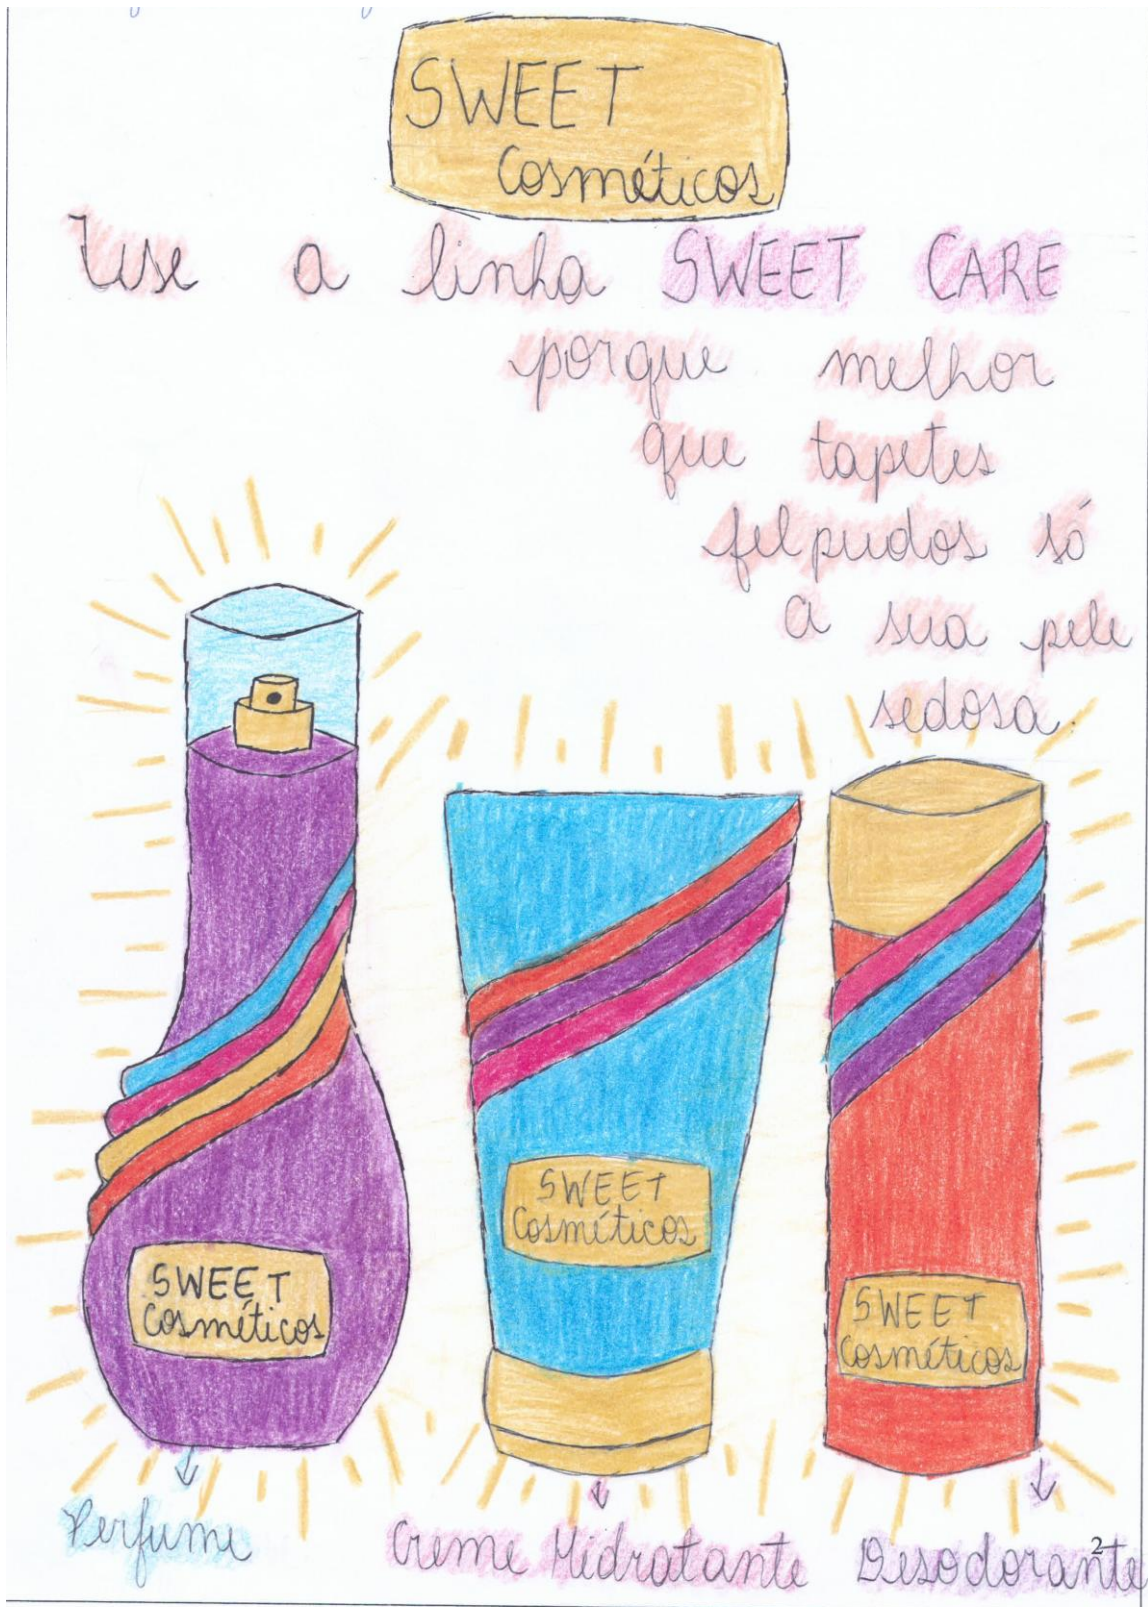 SWEET
Cosméticos
Use a linha SWEET CARE
porque melhor
que tapetes
felpudos só
a sua pele
sedosa.
SWEET
Cosméticos
SWEET
Cosméticos
SWEET
Cosméticos
Perfume
Creme Hidratante
Desodorante
2